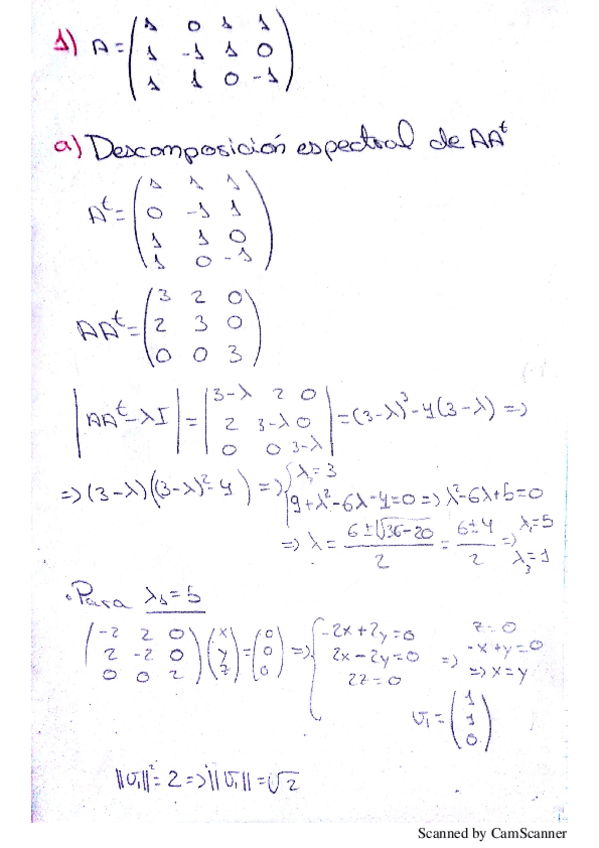 1) A = (1 0 1 1
1 -1 1 0
1 1 0 -1)
a) Descomposición espectral de AAᵗ
Aᵗ = (1 1 1
0 -1 1
1 1 0
1 0 -1)
AAᵗ = (3 2 0
2 3 0
0 0 3)
|AAᵗ-λI| = |3-λ 2 0
2 3-λ 0
0 0 3-λ| = (3-λ)³-4(3-λ) =>
=> (3-λ)((3-λ)²-4) => { λ₂=3
9+λ²-6λ-4=0 => λ²-6λ+5=0
=> λ = (6±√36-20)/2 = (6±4)/2 => λ₁=5
λ₃=1
• Para λ₁=5
(-2 2 0
2 -2 0
0 0 2) (x
y
z) = (0
0
0) => { -2x+2y=0
2x-2y=0
2z=0
=> z=0
-x+y=0
=> x=y
v₁ = (1
1
0)
||v₁||²=2 => ||v₁||=√2
Scanned by CamScanner